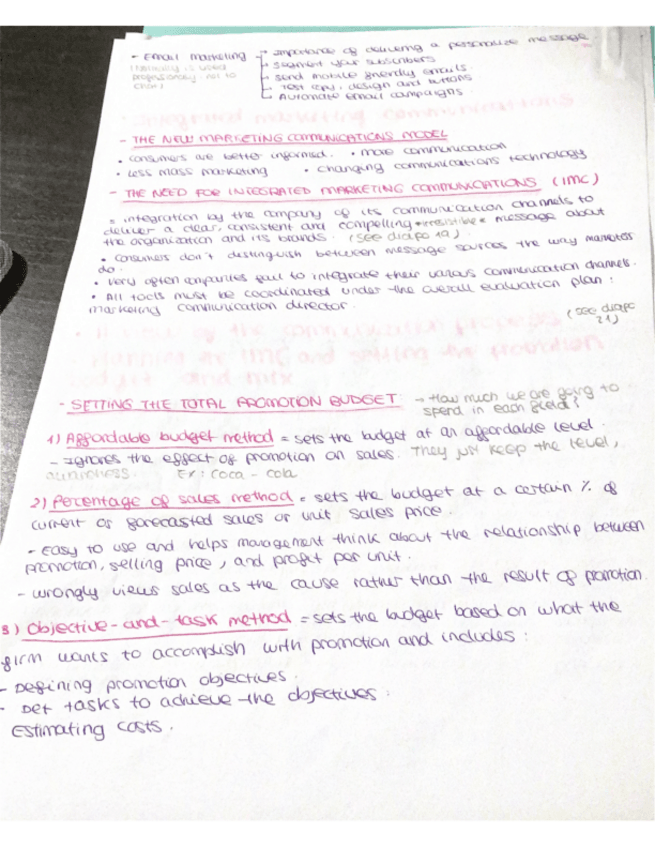 - Email marketing
→ importance of delivering a personalize message
→ segment your subscribers
→ send mobile friendly emails.
→ Test copy, design and buttons
→ Automate email campaigns.
is used
professionally. not to
Integrated marketing communications
- THE NEW MARKETING COMMUNICATIONS MODEL
• consumers are better informed. • more communication
• Less mass marketing • changing communications technology
- THE NEED FOR INTEGRATED MARKETING COMMUNICATIONS (IMC)
= integration by the company of its communication channels to
deliver a clear, consistent and compelling *irresistible* message about
the organization and its brands. (see diapo 19).
• consumers don't distinguish between message sources the way marketers
do.
• very often companies fail to integrate their various communication channels.
• All tools must be coordinated under the overall evaluation plan:
marketing communication director.
(see diapo
21)
• A view of the communication process
• Planning the IMC and setting the promotion
budget and mix
- SETTING THE TOTAL PROMOTION BUDGET → How much we are going to
spend in each field?
1) Affordable budget method = sets the budget at an affordable level.
- Ignores the effect of promotion on sales. They just keep the level,
awareness. Ex: Coca-cola
2) Percentage of sales method = sets the budget at a certain % of
current or forecasted sales or unit sales price.
- Easy to use and helps management think about the relationship between
promotion, selling price, and profit per unit.
- wrongly views sales as the cause rather than the result of promotion.
3) Objective-and-task method = sets the budget based on what the
firm wants to accomplish with promotion and includes:
- Defining promotion objectives.
- Det tasks to achieve the objectives.
Estimating costs.